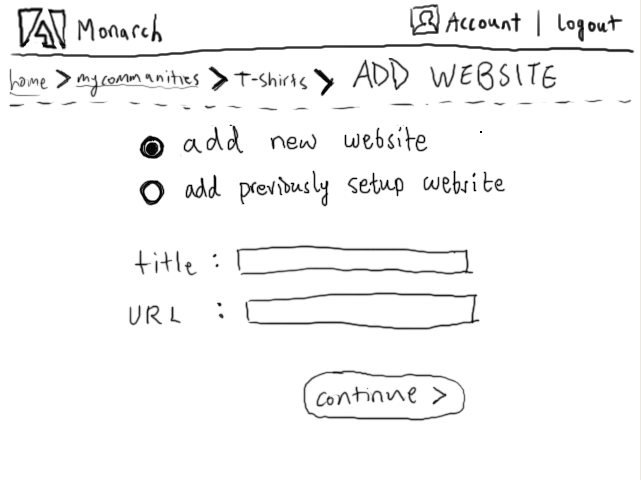 Monarch Account | Logout
home > my communities > T-shirts > ADD WEBSITE
add new website
add previously setup website
title :
URL :
continue >